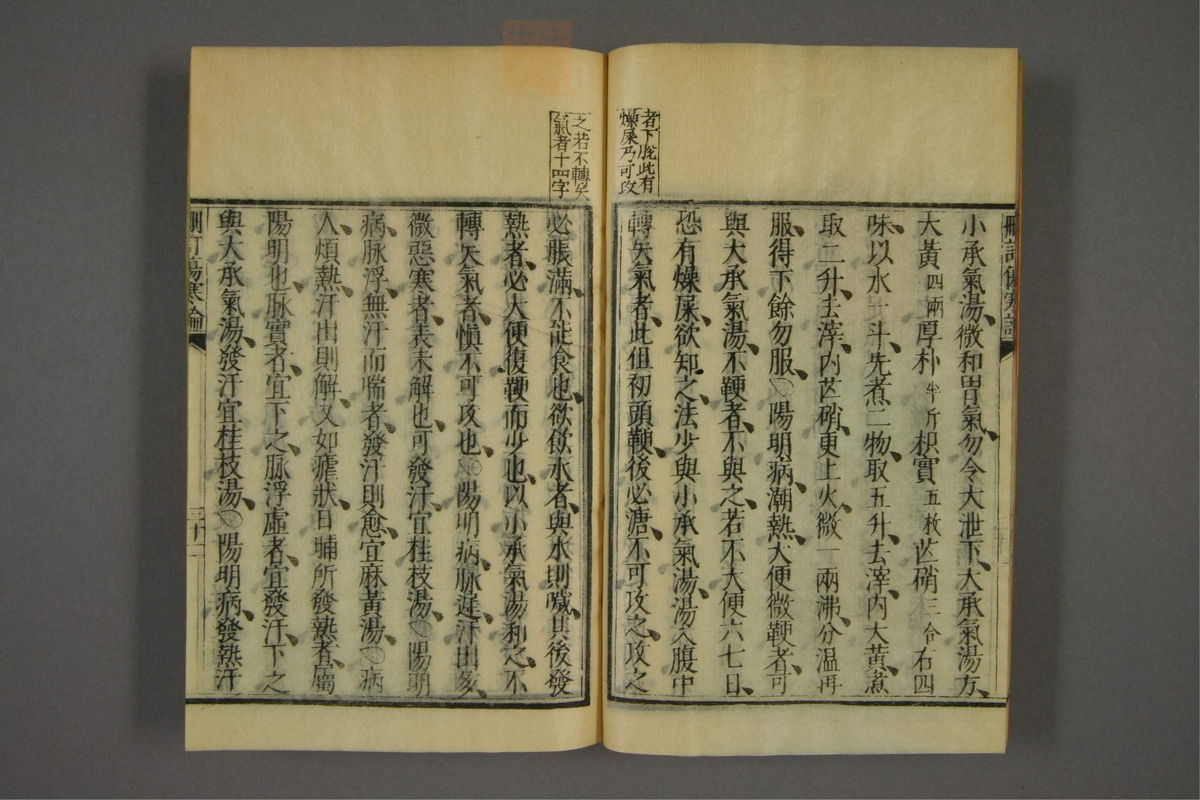 者下脫此有
燥屎乃可攻
小承氣湯微和胃氣勿令大泄下大承氣湯方
大黃四兩厚朴半斤枳實五枚芒硝三合右四
味以水一斗先煮二物取五升去滓內大黃煮
取二升去滓內芒硝更上火微一兩沸分溫再
服得下餘勿服○陽明病潮熱大便微鞕者可
與大承氣湯不鞕者不與之若不大便六七日
恐有燥屎欲知之法少與小承氣湯湯入腹中
轉失氣者此但初頭鞕後必溏不可攻之攻之
之若不轉失
氣者十四字
必脹滿不能食也欲飲水者與水則噦其後發
熱者必大便復鞕而少也以小承氣湯和之不
轉失氣者愼不可攻也○陽明病脉遲汗出多
微惡寒者表未解也可發汗宜桂枝湯○陽明
病脉浮無汗而喘者發汗則愈宜麻黃湯○病
人煩熱汗出則解又如瘧狀日晡所發熱者屬
陽明也脉實者宜下之脉浮虛者宜發汗下之
與大承氣湯發汗宜桂枝湯○陽明病發熱汗
刪訂傷寒論